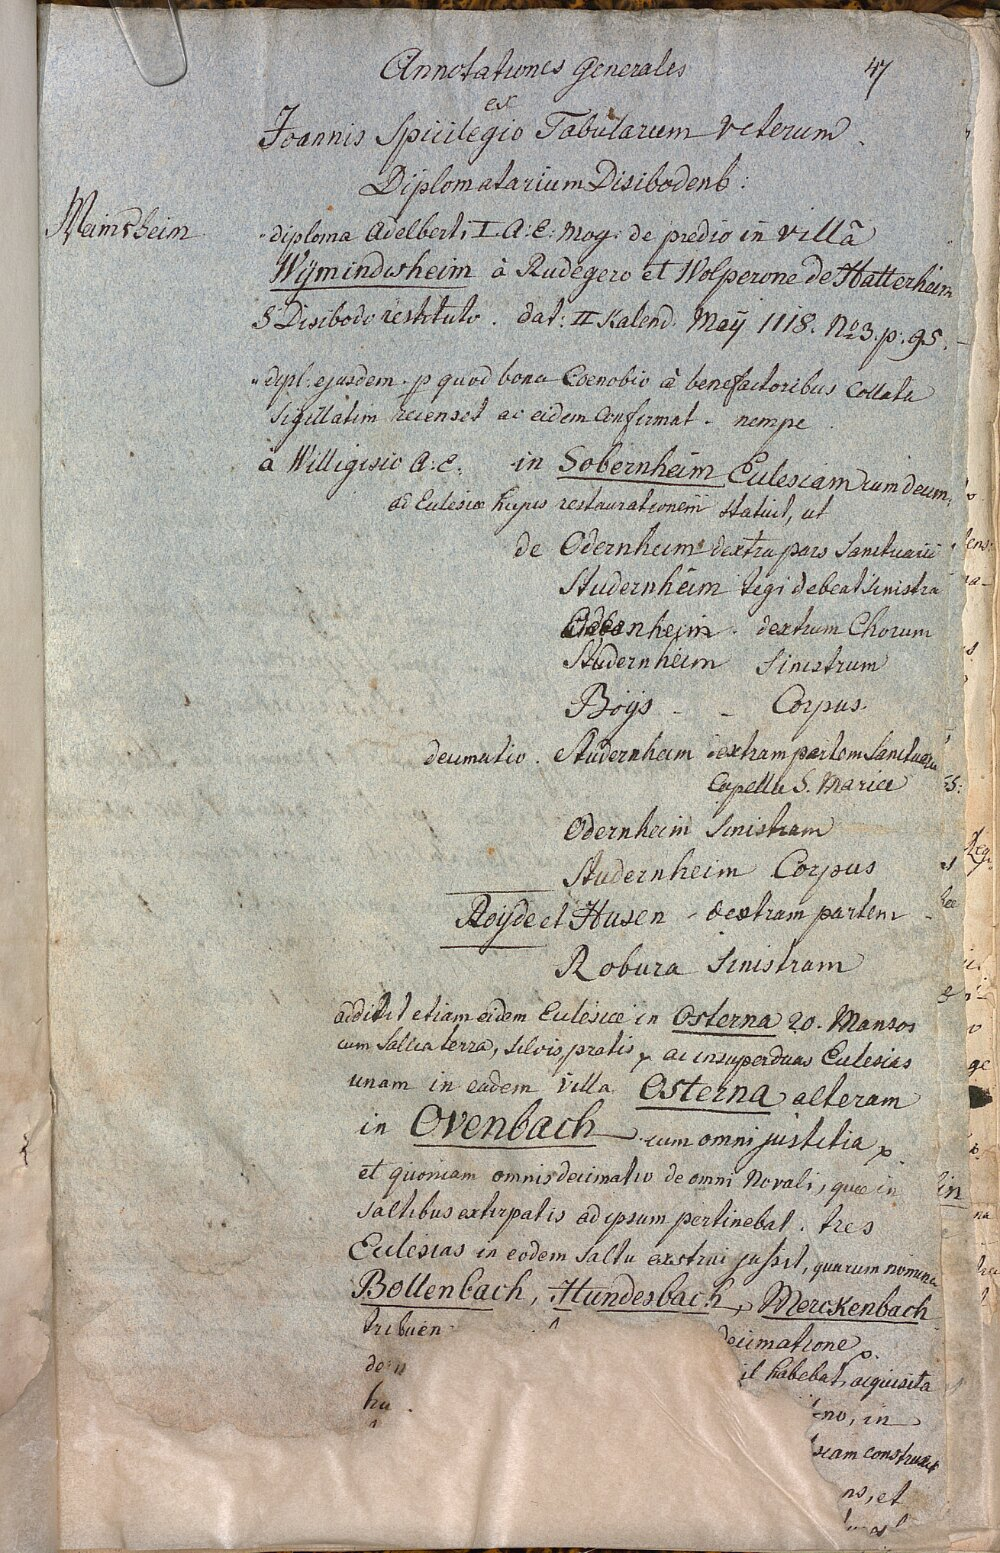 Annotationes Generales
47
ex
Joannis Spicilegio Tabularum veterum
Diplomatarium Disibodenb:
Meimsheim
diploma Adelberti I A: E: Mog: de predio in villâ
Wÿmindisheim à Rudegero et Wolperone de Hatterheim
S Disibodo restituto. dat: II Kalend. Maÿ 1118. No 3. p. 95.
dipl. ejusdem. p quod bona Coenobio à benefactoribus Collata
sigillatim recenset ac eidem Confirmat. nempe
à Willigisio A: E: in Sobernheim Eclesiam cum decim.
ad Eclesiæ hujus restaurationem statuit, ut
de Odernheim dextra pars Sanctuarii
Studernheim tegi debeat sinistra
Odernheim. dextrum Chorum
Studernheim Sinistrum
Boÿs - - Corpus
decimatio. Studernheim dextram partem Sanctuarii
Capellæ S. Mariæ
Odernheim sinistram
Studernheim Corpus
Roÿde et Husen - dextram partem
Robura sinistram
addidit etiam eidem Eclesiæ in Osterna 20. Mansos
cum Salica terra, silvis, pratis, ac insuper duas Eclesias
unam in eadem villa Osterna alteram
in Ovenbach cum omni justitia
et quoniam omnis decimatio de omni Novali, quæ in
saltibus extirpatis ad ipsum pertinebat. tres
Eclesias in eodem saltu exstrui jussit, quarum nomina
Bollenbach, Hundesbach, Merckenbach
tribuen decimatione
de il habebat, acquisita
hu no, in
siam construxit
ns, et